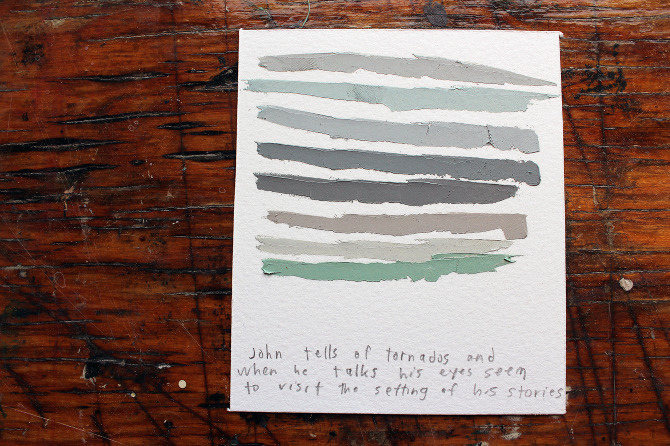 John tells of tornados and
when he talks his eyes seem
to visit the setting of his stories